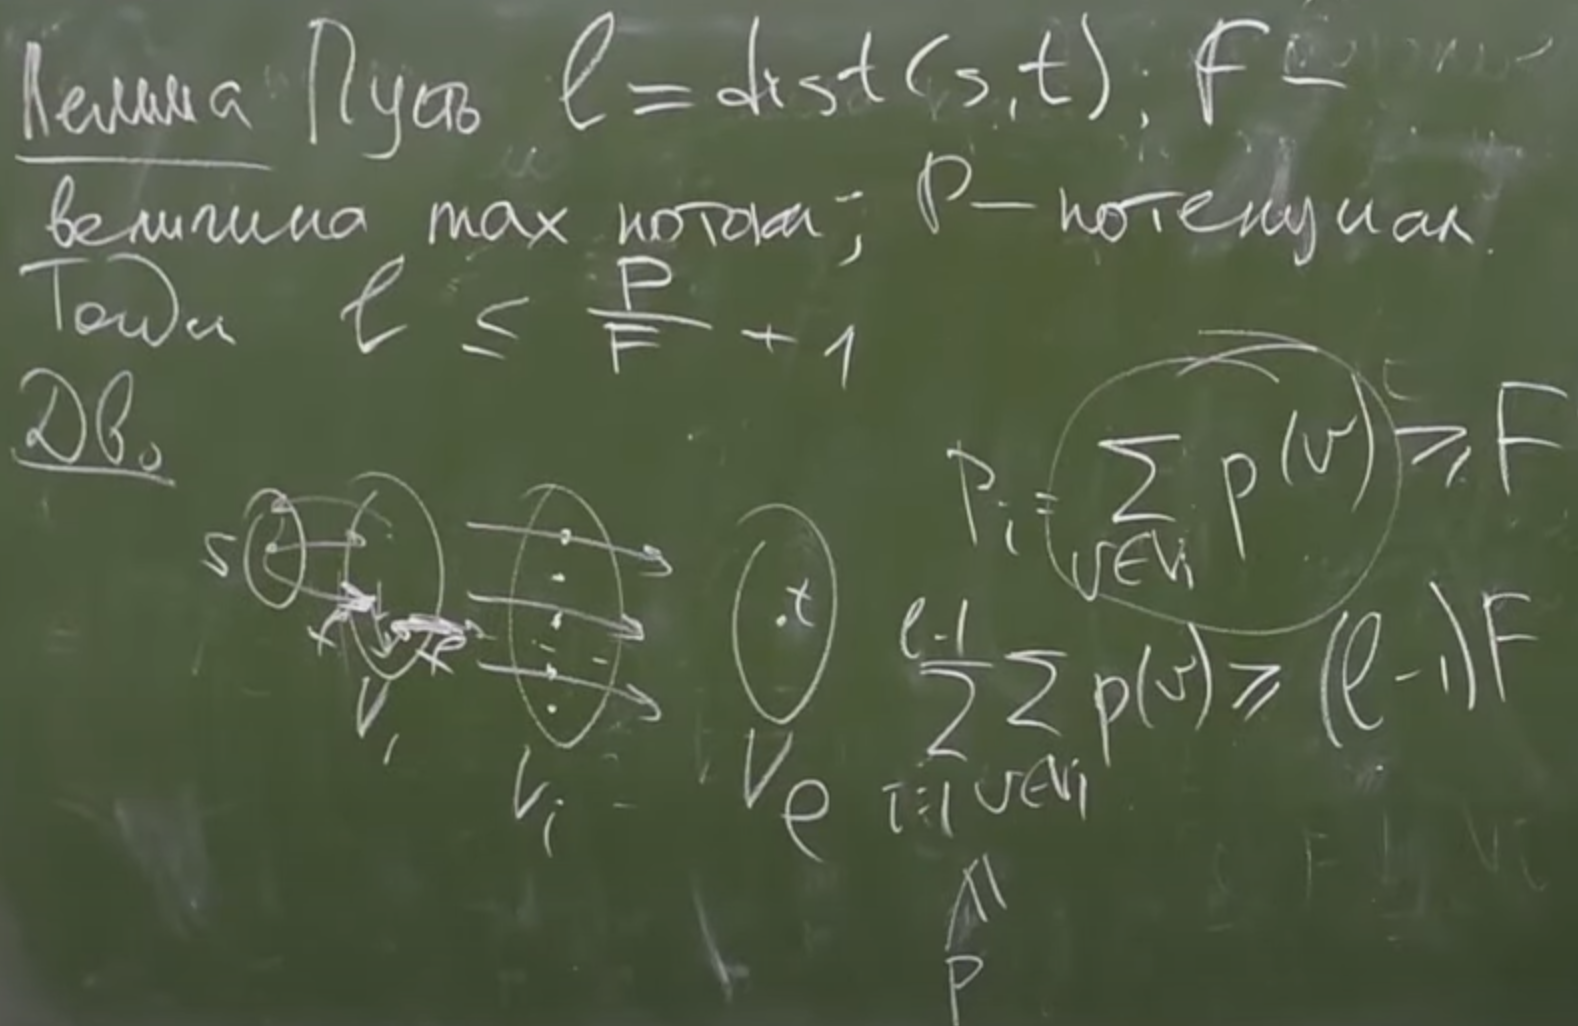 Лемма Пусть l = dist(s,t); F –
величина max потока; P – потенциал.
Тогда l ≤ P/F + 1
Дв.
P_i = ∑_{v∈V_i} p(v) ≥ F
∑_{i=1}^{l-1} ∑_{v∈V_i} p(v) ≥ (l-1)F
P
S
t
V_1
V_i
V_l